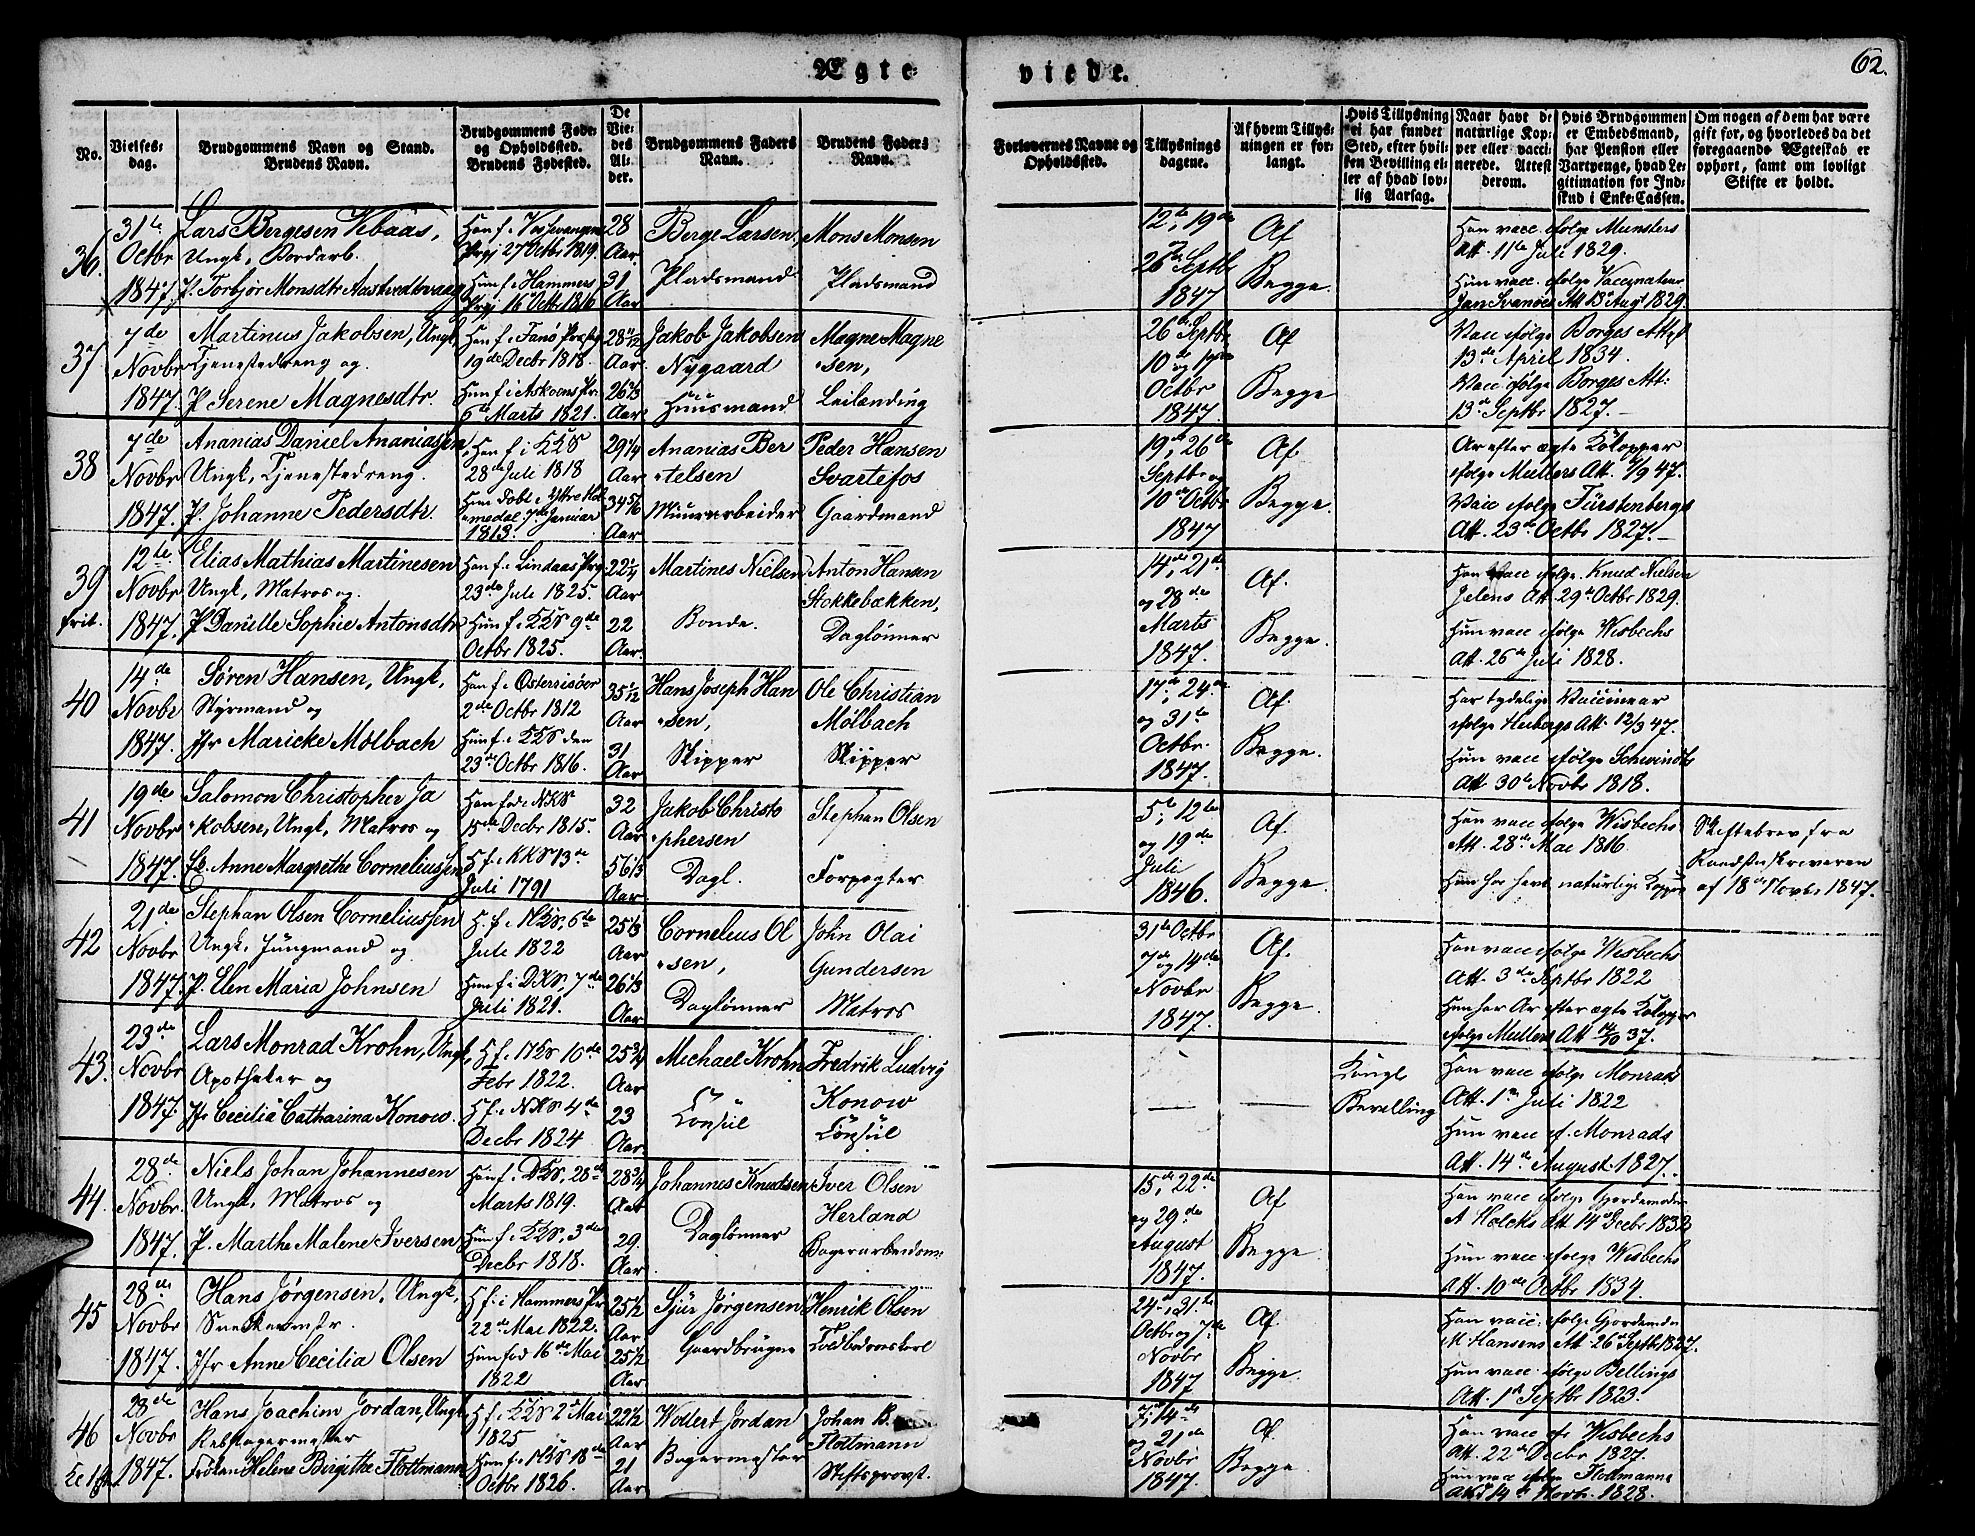 Ægte-
viede.
62.
No.
Vielses-
dag.
Brudgommens Navn og Stand.
Brudens Navn.
Brudgommens Føde-
og Opholdssted.
Brudens Fødested.
De
Vie-
des
Al-
der.
Brudgommens Faders
Navn.
Brudens Faders
Navn.
Forlovernes Navne og
Opholdssted.
Tillysnings
dagene.
Af hvem Tillys-
ningen er for-
langt.
Hvis Tillysning
ei har fundet
Sted, efter hvil-
ken Bevilling el-
ler af hvad lov-
lig Aarsag.
Naar havt de
naturlige Kop-
per eller vacci-
nerede. Attest
derom.
Hvis Brudgommen
er Embedsmand,
har Pension eller
Vartpenge, hvad Le-
gitimation for Ind-
skud i Enke-Cassen.
Om nogen af dem har være
gift før, og hvorledes da det
foregaaende Ægteskab er
ophørt, samt om lovligt
Skifte er holdt.
36.
31te
Octbr
1847
Lars Bergesen Vebaas,
Ungk. Bordarb.
P. Torbjør Monsdtr Aastvedtvang
Han f. i Vossevangens
Prgj 27 Octbr 1819.
Hun f. i Hammers
Prgj 16 Octbr 1816
28
Aar
31
Aar
Berge Larsen
Pladsmand
Mons Monsen
Pladsmand
12te, 19de
26de Septbr
1847
Af
Begge.
Han vacc. ifølge Munsters
Att. 11te Juli 1829.
Hun vacc. ifølge Vaccinateur
Jan Svanøes Att 13 Augt 1829.
37
7de
Novbr
1847.
Martinus Jakobsen, Ungk.
Tjenestedreng og
P. Serene Magnesdtr.
Han f. i Fanø Præstg
19de Decbr 1818.
Hun f. i Askøens Pr.
6te Marts 1821.
28 11/12
Aar
26 2/3
Aar
Jakob Jakobsen
Nygaard
Huusmand
Magne Magne
-sen,
Leilending
26de Septbr
10de og 17de
Octbr
1847.
Af
Begge
Vacc ifølge Borges Attest
13de April 1834.
Vacc ifølge Borges Att:
13de Septbr 1827.
38
7de
Novbr
1847.
Ananias Daniel Ananiassen
Ungk. Tjenestedreng.
P. Johanne Pedersdtr.
Han f. i KKS
28de Juli 1818
Januar
1813.
29 1/4
Aar
34 5/6
Aar
Ananias Ber
-telsen
Muurarbeider
Peder Hansen
Svartefos
Gaardmand
19de, 26de
Septbr og
10de Octbr
1847
Af.
Begge.
Ar efter ægte Kokopper
ifølge Mullers Att. 4/9 47.
Vacc ifølge Fürstenbergs
Att. 23de Octbr 1827.
39
frit.
12te
Novbr
1847.
Elias Mathias Martinesen
Ungk, Matros og.
P. Danielle Sophie Antonsdtr
Han f. i Lindaas Prg.
23de Juli 1825.
Hun f. i KKS 9de
Octbr 1825.
22 1/4
Aar
22
Aar.
Martines Nielsen
Bonde.
Anton Hansen
Stokkebækken,
Daglønner
14de, 21de
og 28de
Marts
1847.
Af.
Begge.
Han vacc ifølge Knud Nielsen
Jelens Att 29de Octbr 1829.
Hun vacc ifølge Wisbechs
Att. 26de Juli 1828.
40
14de
Novbr
1847.
Søren Hansen, Ungk,
Styrmand og
Jfr Maricke Mölbach
Han f. i Østerrisöer
2de Octbr 1812
Hun f. i KKS den
23de Octbr 1816.
35 1/12
Aar
31
Aar
Hans Joseph Han
-sen,
Skipper
Ole Christian
Mölbach
Skipper
17de, 24de
og 31te
Octbr.
1847.
Af.
Begge.
Har tydelige Vaccinear
ifølge Heibergs Att. 12/9 47.
Hun vacc ifølge Schwindts
Att 30te Novbr 1818.
41
19de
Novbr
1847.
Salomon Christopher Ja
-kobsen, Ungk, Matros og
Anne Margrethe Corneliussen
Han fød i NKS
15de Decbr 1815.
H. f. i KKS 13de
Juli 1791
32
Aar
56 1/3
Aar
Jakob Christo
-phersen
Dagl.
Stephan Olsen
Forpagter
5te, 12te
og 19de
Juli
1846.
Af.
Begge
Han vacc ifølge Wisbechs
Att. 28de Mai 1816
Hun har havt naturlige Kopper
Skiftebrev fra
Raadstuskriveren
af 18de Novbr 1847.
42
21de
Novbr
1847.
Stephan Olsen Corneliussen
Ungk. Jungmand og
P. Elen Maria Johnsen
H. f. i NKS, 6te
Juli 1822
Hun f. i DKS, 7de
Juli 1821.
25 1/3
Aar
26 1/3
Aar
Cornelius Ol
-sen,
Dagløuner
John Olai
Gundersen
Matros
31te Octbr
7de og 14de
Novbr
1847.
Af.
Begge.
Han vacc ifølge Wisbechs
Att. 3de Septbr 1822
Hun har Ar efter ægte Kokopper
ifølge Mullers Att 37.
43.
23de
Novbr
1847.
Lars Monrad Krohn, Ungk.
Apotheker og
Jfr Cecilia Catharina Konow.
H. f. i NKS 10de
Febr 1822.
H. f. i NKS 4de
Decbr 1824
25 3/4
Aar
23
Aar
Michael Krohn
Consul
Fredrik Ludvig
Konow
Consul
Kongl
Bevilling
Han vacc ifølge Monrads
Att. 1te Juli 1822
Hun vacc if. Monrads
Att. 14de August 1827.
44.
28de
Novbr.
1847.
Niels Johan Johannesen
Ungk, Matros og
P. Marthe Malene Iversen
Han f. i DKS, 28de
Marts 1819.
Hun f. i KKS, 3de
Decbr 1818.
28 3/4
Aar
29.
Aar
Johannes Knudsen
Dagløuner
Iver Olsen
Herland
15de, 22de
og 29de
August
1847.
Af
Begge.
Han vacc ifølge Gjordemoder
A Holcks Att 14de Decbr 1832
Hun vacc ifølge Wisbechs
Att. 10de Octbr 1834.
45
28de
Novbr
1847.
Hans Jørgensen, Ungk,
Snedkermstr.
Jfr Anne Cecilia Olsen
H f. i Hammers Pr
22de Mai 1822.
Hun fød 16de Mai
1822
25 1/2
Aar
25 1/2
Aar
Sjur Jørgensen
Gaardbruger
Henrik Olsen
Toldbedskarl
24de, 31te
Octbr og 7de
Novbr
1847
Af.
Begge.
Han vacc. ifølge Gjordemdr
M Hansens Att 26de Septbr 1827.
Hun vacc. ifølge Bellings
Att. 1te Septbr 1823.
46
28de
Novbr
1847.
Hans Joachim Jordan, Ungk.
Rebslagermester
Frøken Helene Birgithe Flottmann
H f. i KKS 2de Mai
1825
Hun f. i NKS 18de
Octbr 1826.
22 1/2
Aar
21
Aar
Wollert Jordan
Bagermester
Johan B.
Flottmann
Stiftsprovst.
7de, 14de
og 21de
Novbr
1847.
Af.
Begge.
Han vacc if Wisbechs
Att. 22de Decbr 1827.
Hun vacc ifølge Flottmanns
Att 14de Novbr. 1828.